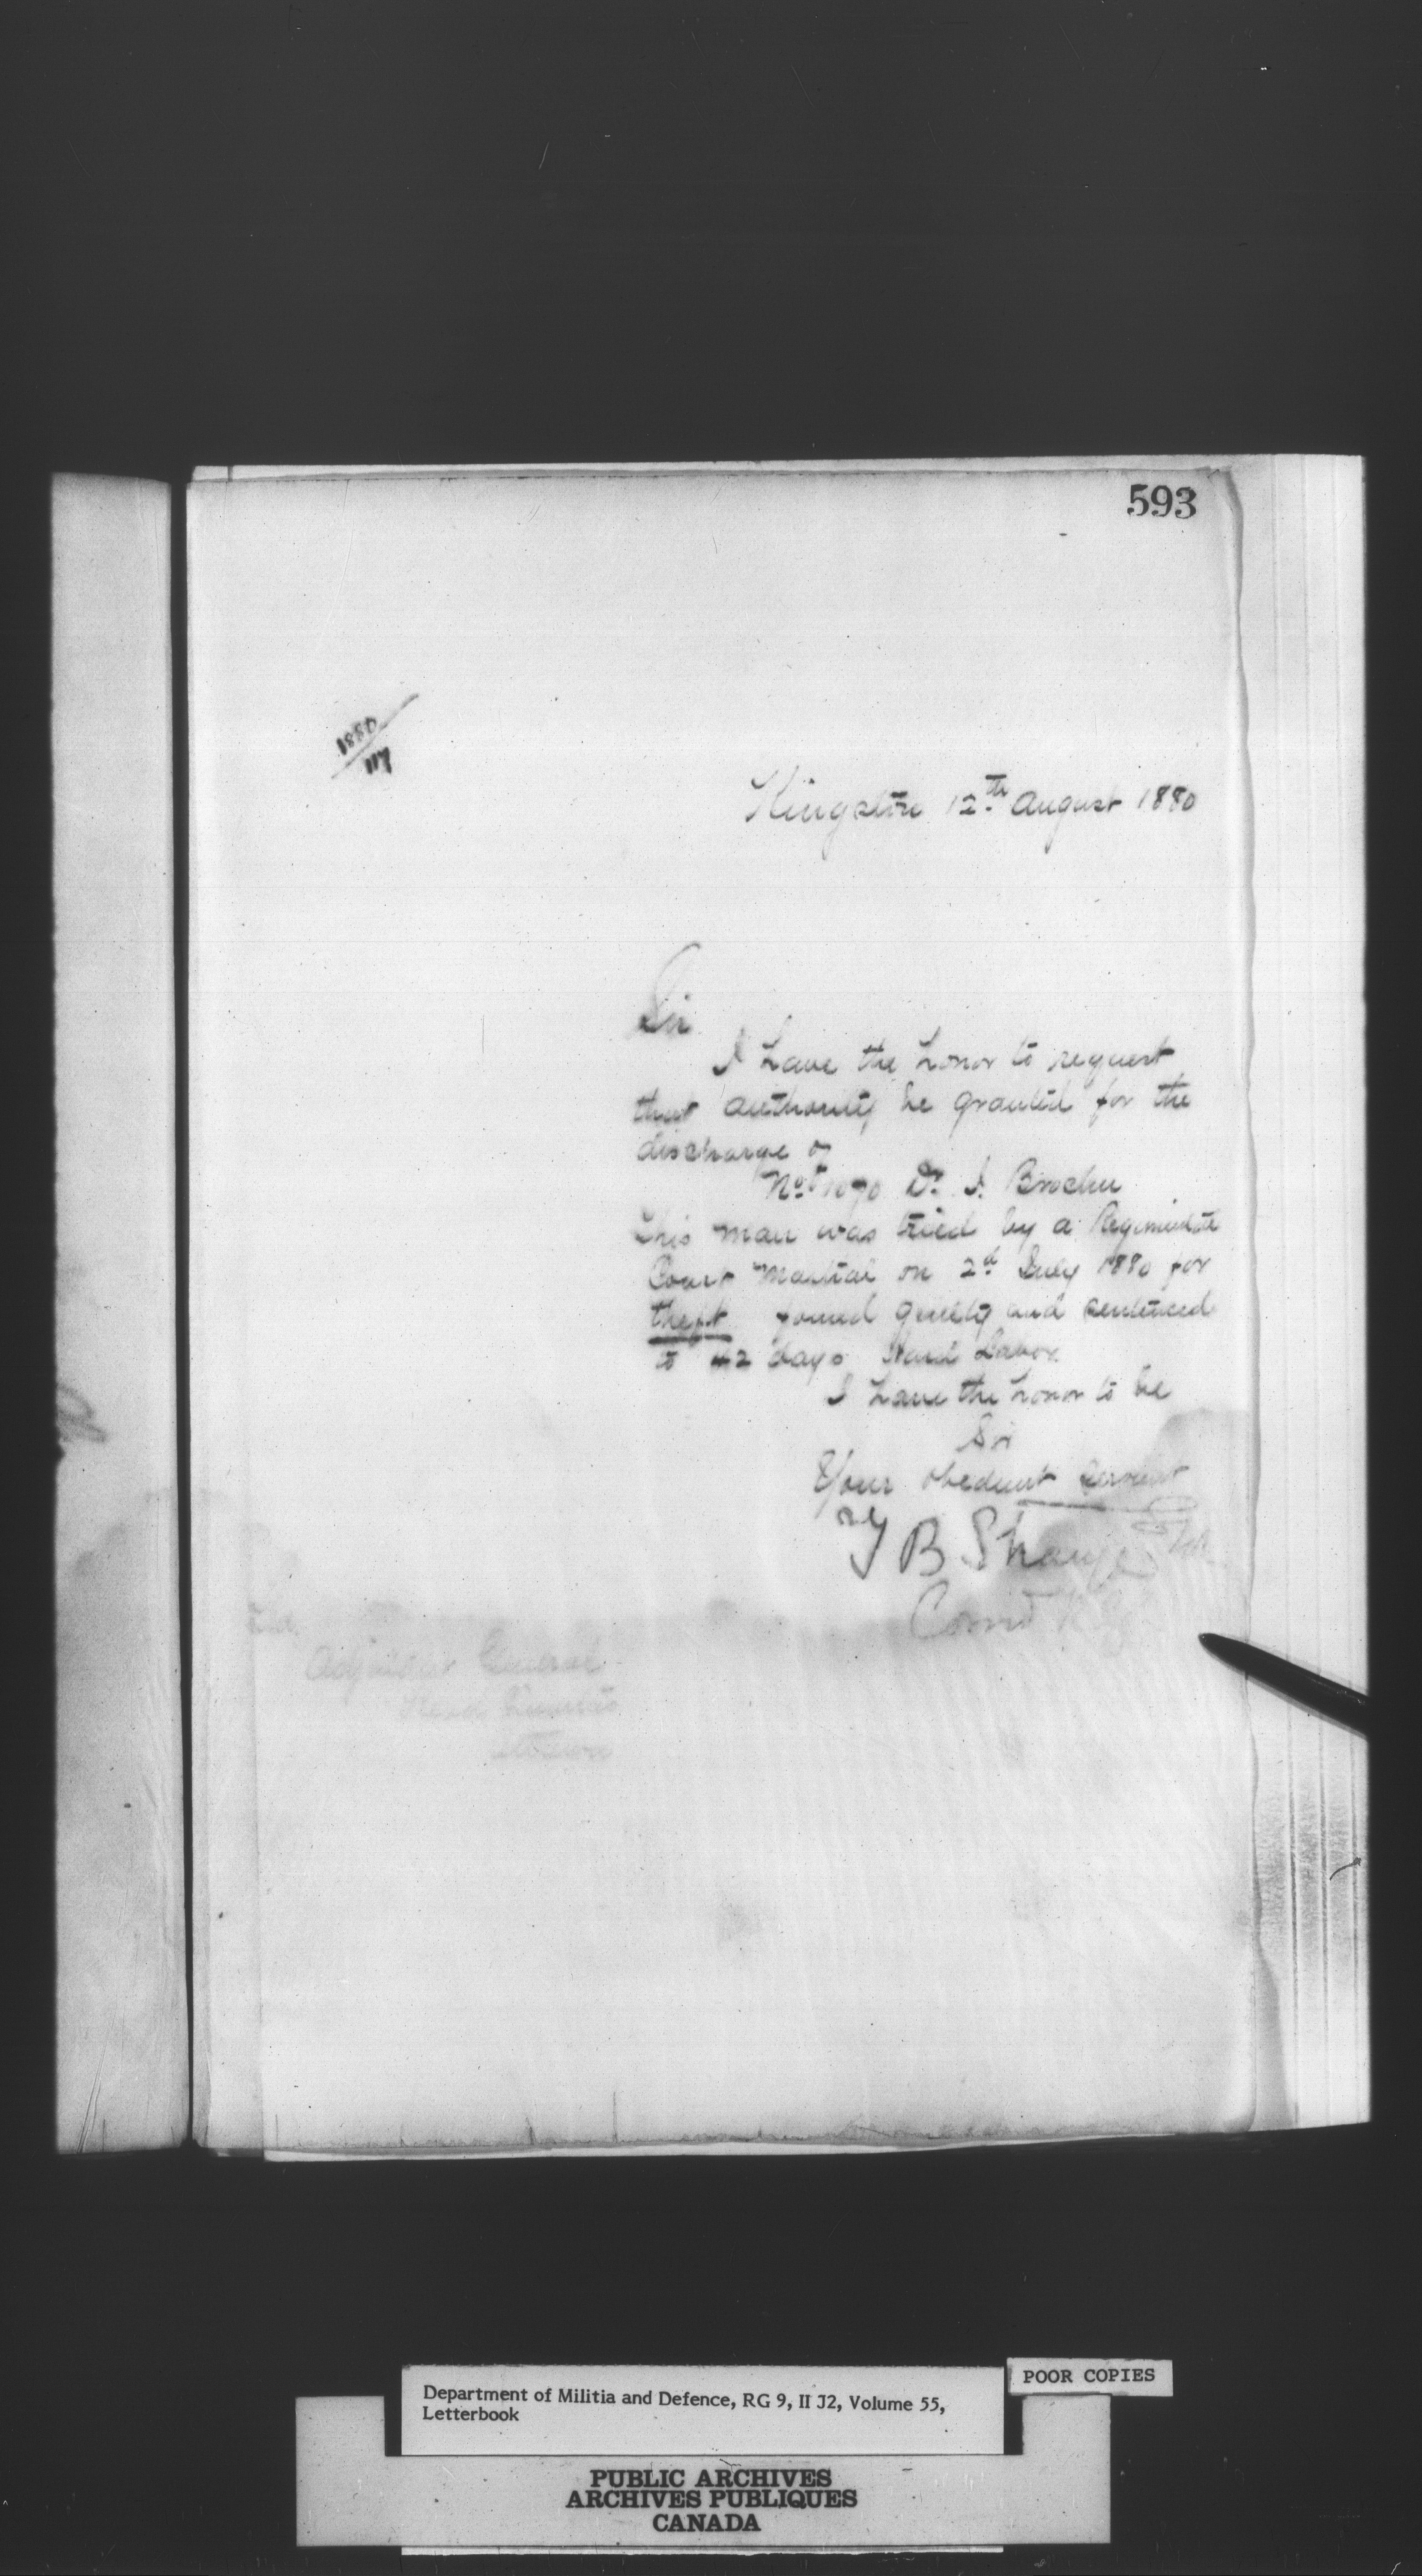 593
1880
Kingston 12th August 1880
Sir
I have the honor to request
that authority be granted for the
discharge of
No. 1070 Dr. J. Brochu
This man was tried by a Regimental
Court Martial on 2d July 1880 for
theft found guilty and sentenced
to 42 days Hard Labor
I have the honor to be
Sir
Your obedient servant
T B Strange
Comd
Adjutant General
Head Quarters
Ottawa
Department of Militia and Defence, RG 9, II J2, Volume 55,
Letterbook
POOR COPIES
PUBLIC ARCHIVES
ARCHIVES PUBLIQUES
CANADA